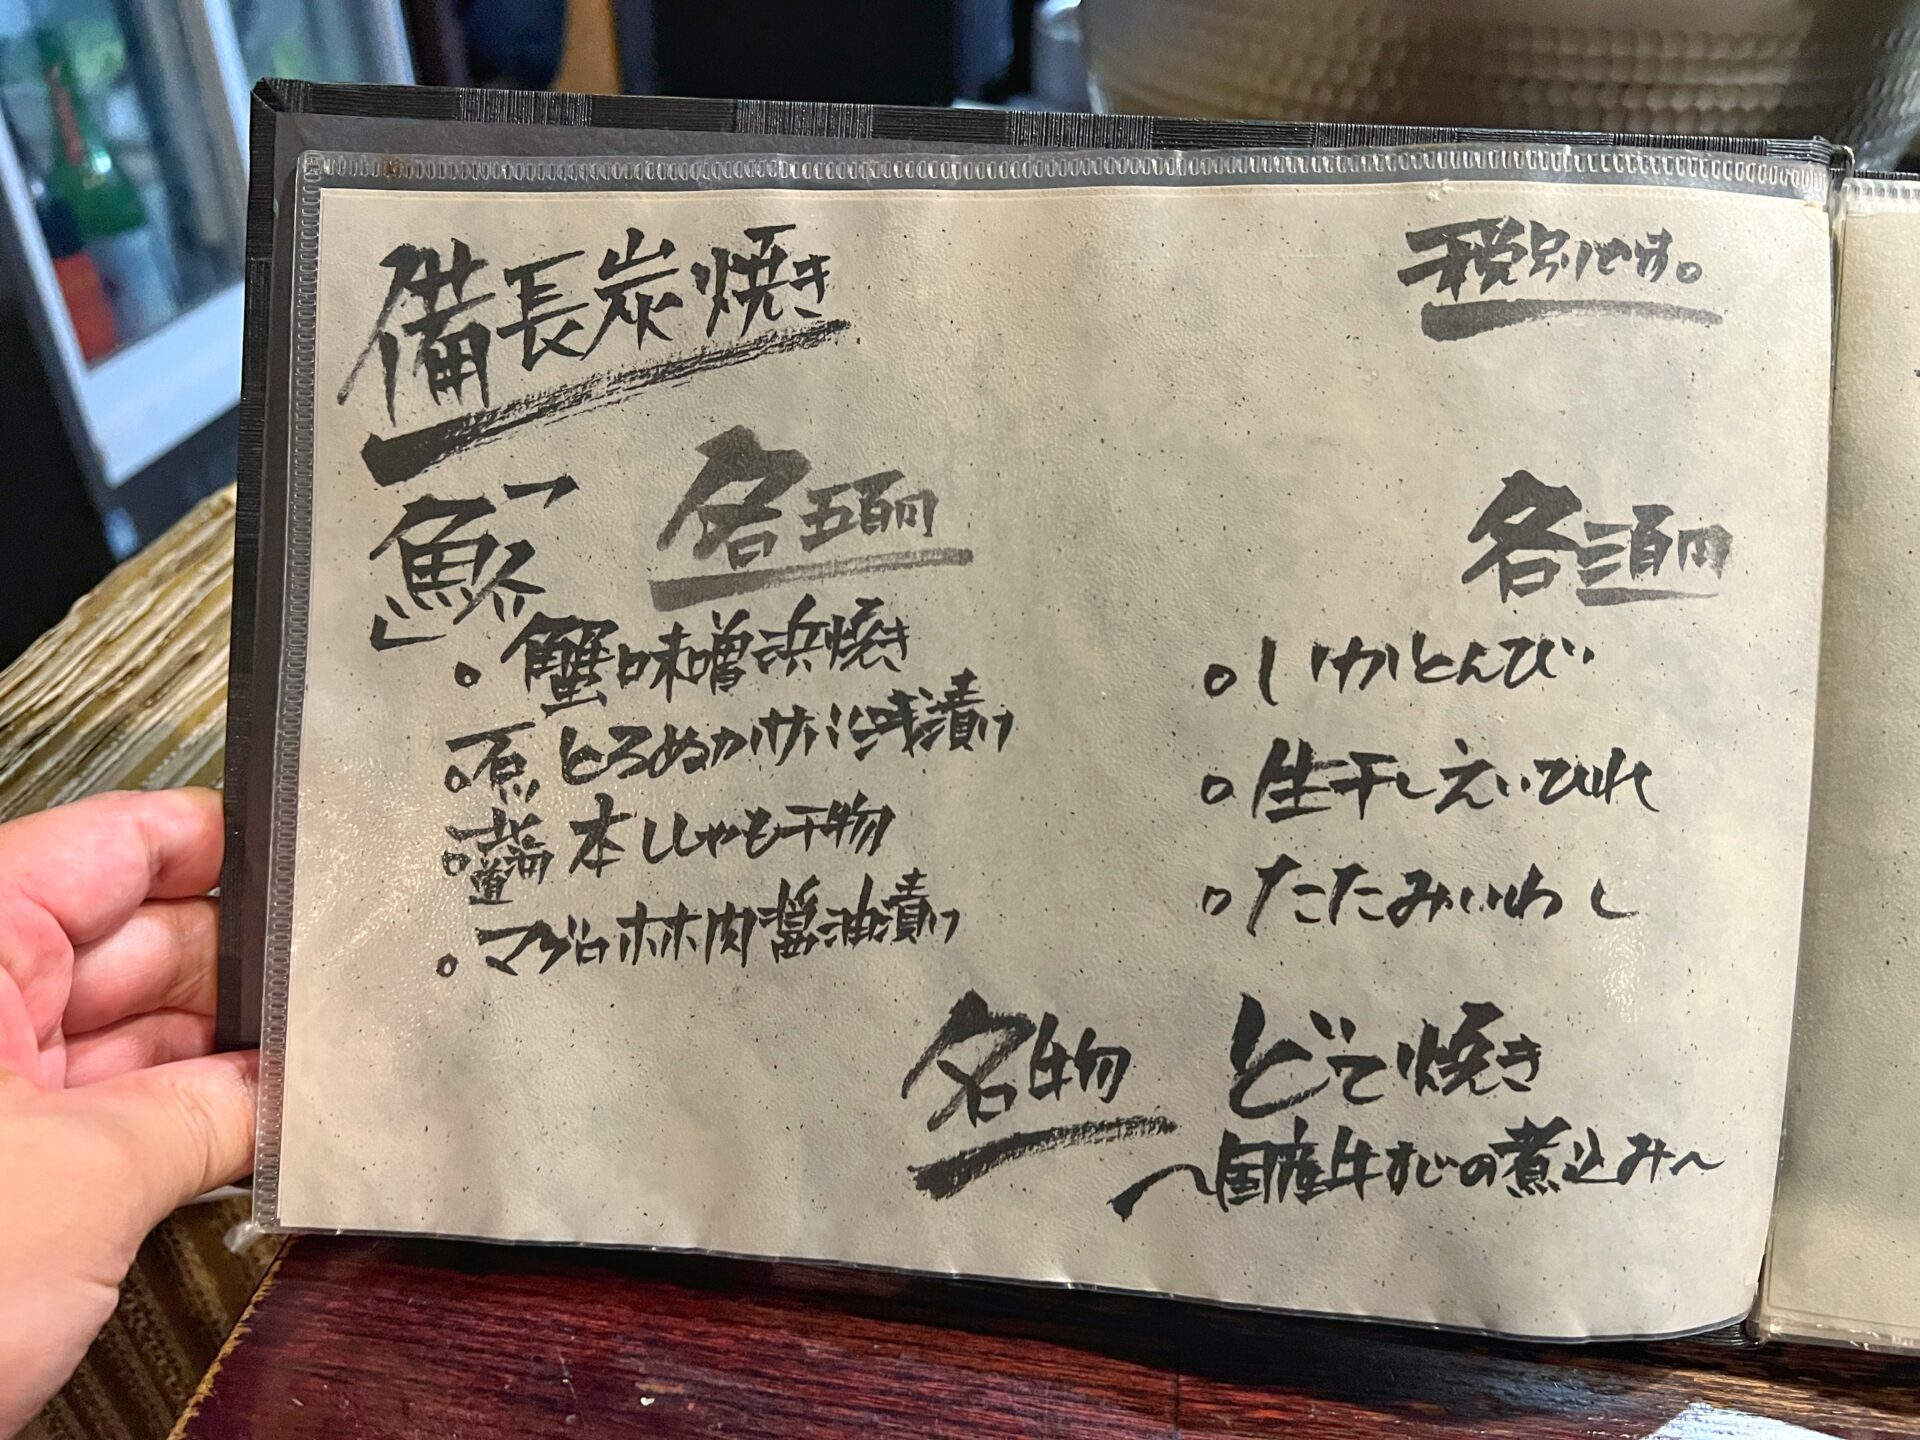 備長炭焼き
税別です。
「魚」
各五百円
。蟹味噌浜焼き
。とろぬかサバ浅漬け
。北海道 本ししゃも干物
。マグロホホ肉醤油漬け
各三百円
。いかとんび
。生干しえいひれ
。たたみいわし
名物 どて焼き
〜国産牛すじの煮込み〜